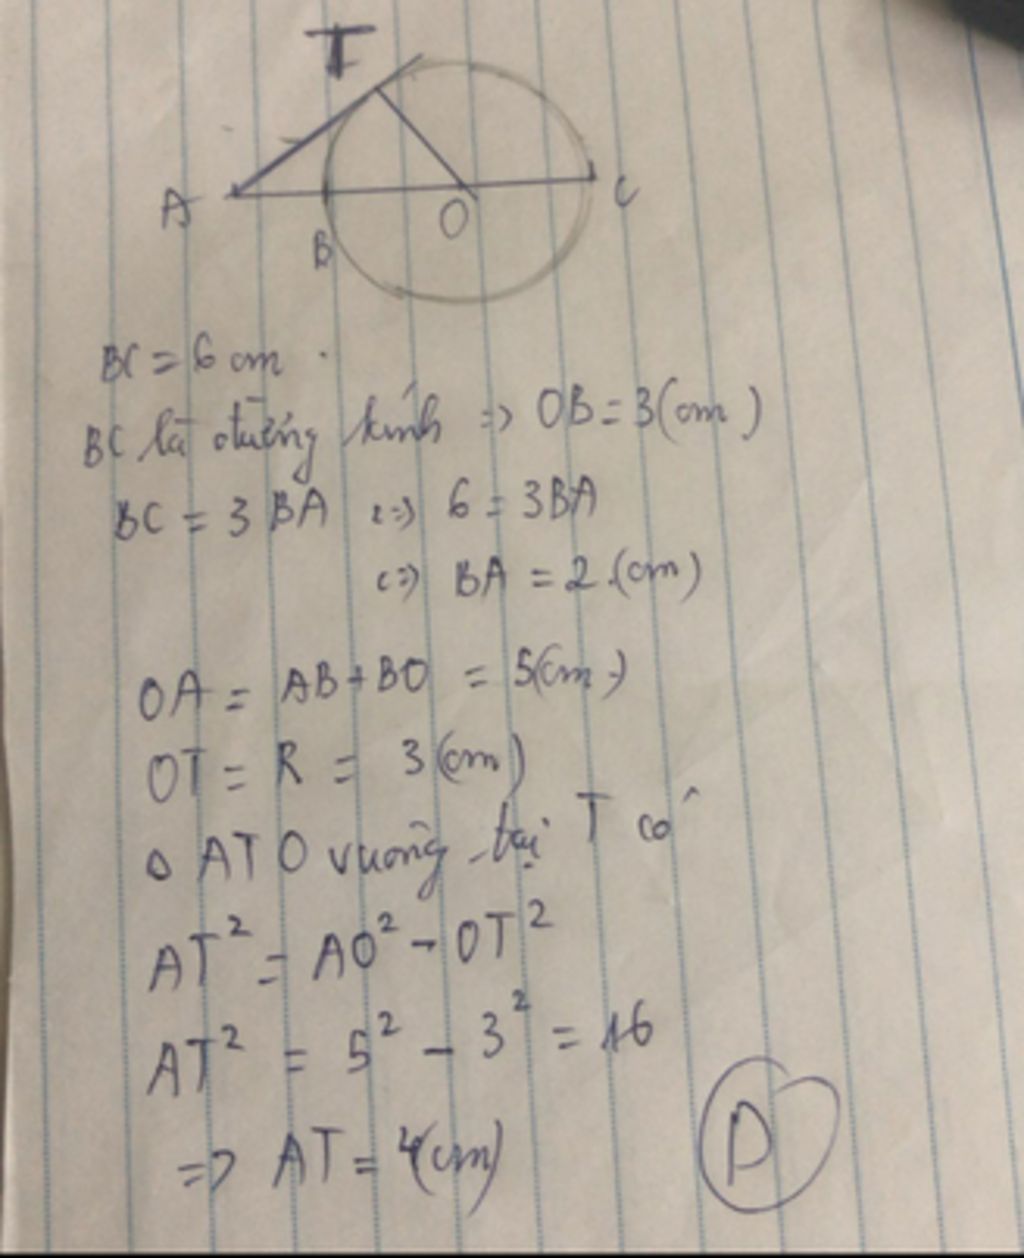 T
A
B
O
C
BC = 6 cm .
BC là đường kính => OB = 3(cm)
BC = 3 BA <=> 6 = 3BA
<=> BA = 2 (cm)
OA = AB + BO = 5(cm)
OT = R = 3 (cm)
Δ ATO vuông tại T có
AT² = AO² - OT²
AT² = 5² - 3² = 16
=> AT = 4(cm)
D